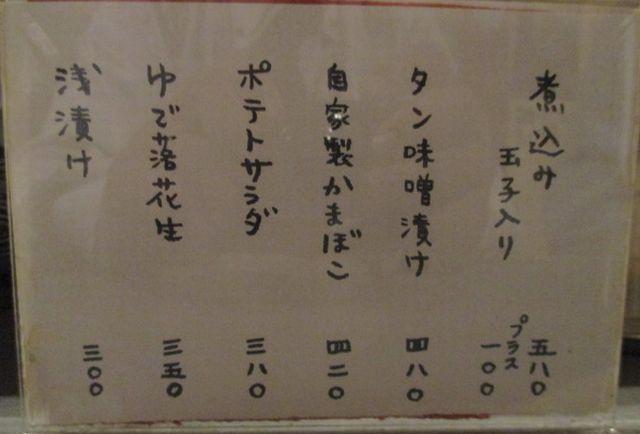 煮込み 五八〇
玉子入り プラス一〇〇
タン味噌漬け 四八〇
自家製かまぼこ 四二〇
ポテトサラダ 三八〇
ゆで落花生 三五〇
浅漬け 三〇〇